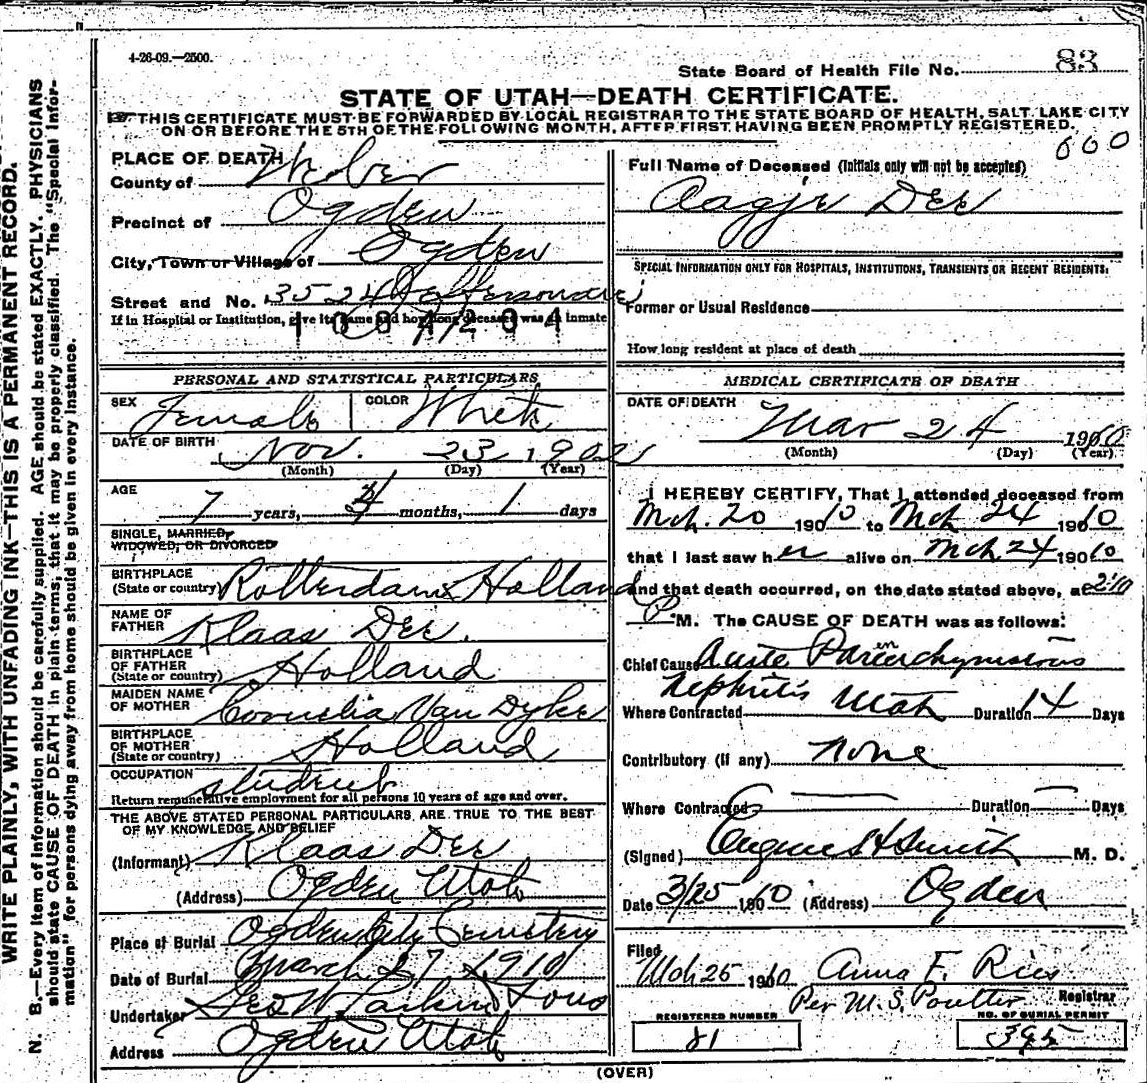 WRITE PLAINLY, WITH UNFADING INK—THIS IS A PERMANENT RECORD.
N. B.—Every item of information should be carefully supplied. AGE should be stated EXACTLY. PHYSICIANS
should state CAUSE OF DEATH in plain terms, that it may be properly classified. The "Special Infor-
mation" for persons dying away from home should be given in every instance.
4-26-09.—2500.
State Board of Health File No. 83
STATE OF UTAH—DEATH CERTIFICATE.
THIS CERTIFICATE MUST BE FORWARDED BY LOCAL REGISTRAR TO THE STATE BOARD OF HEALTH, SALT LAKE CITY
ON OR BEFORE THE 5TH OF THE FOLLOWING MONTH, AFTER FIRST HAVING BEEN PROMPTLY REGISTERED.
660
PLACE OF DEATH
County of Weber
Precinct of Ogden
City, Town or Village of Ogden
Street and No. 3524 Jefferson ave
If in Hospital or Institution, give its name and how long deceased was an inmate
1004204
PERSONAL AND STATISTICAL PARTICULARS
SEX Female COLOR White
DATE OF BIRTH Nov. 23 1902
(Month) (Day) (Year)
AGE 7 years, 4 months, 1 days
SINGLE, MARRIED,
WIDOWED, OR DIVORCED
BIRTHPLACE
(State or country) Rotterdam Holland
NAME OF
FATHER Klaas Dee.
BIRTHPLACE
OF FATHER
(State or country) Holland
MAIDEN NAME
OF MOTHER Cornelia Van Dyke
BIRTHPLACE
OF MOTHER
(State or country) Holland
OCCUPATION student
Return remunerative employment for all persons 10 years of age and over.
THE ABOVE STATED PERSONAL PARTICULARS ARE TRUE TO THE BEST
OF MY KNOWLEDGE AND BELIEF
(Informant) Klaas Dee
(Address) Ogden Utah
Place of Burial Ogden City Cemetery
Date of Burial March 27 1910
Undertaker Geo W Larkin & Sons
Address Ogden Utah
Full Name of Deceased (Initials only will not be accepted)
Aagje Dee
SPECIAL INFORMATION ONLY FOR HOSPITALS, INSTITUTIONS, TRANSIENTS OR RECENT RESIDENTS.
Former or Usual Residence
How long resident at place of death
MEDICAL CERTIFICATE OF DEATH
DATE OF DEATH
Mar 24 1910
(Month) (Day) (Year)
I HEREBY CERTIFY, That I attended deceased from
Mch. 20 1910 to Mch 24 1910
that I last saw her alive on Mch 24 1910
and that death occurred, on the date stated above, at 2:10
P M. The CAUSE OF DEATH was as follows:
Chief Cause Acute Parenchymatous
Nephritis
Where Contracted Utah Duration 14 Days
Contributory (if any) None
Where Contracted — Duration — Days
(Signed) Eugene H Smith M. D.
Date 3/25 1910 (Address) Ogden
Filed
Mch 25 1910 Anna F. Rice
Per M. S. Poulter Registrar
REGISTERED NUMBER
81
NO. OF BURIAL PERMIT
395
(OVER)